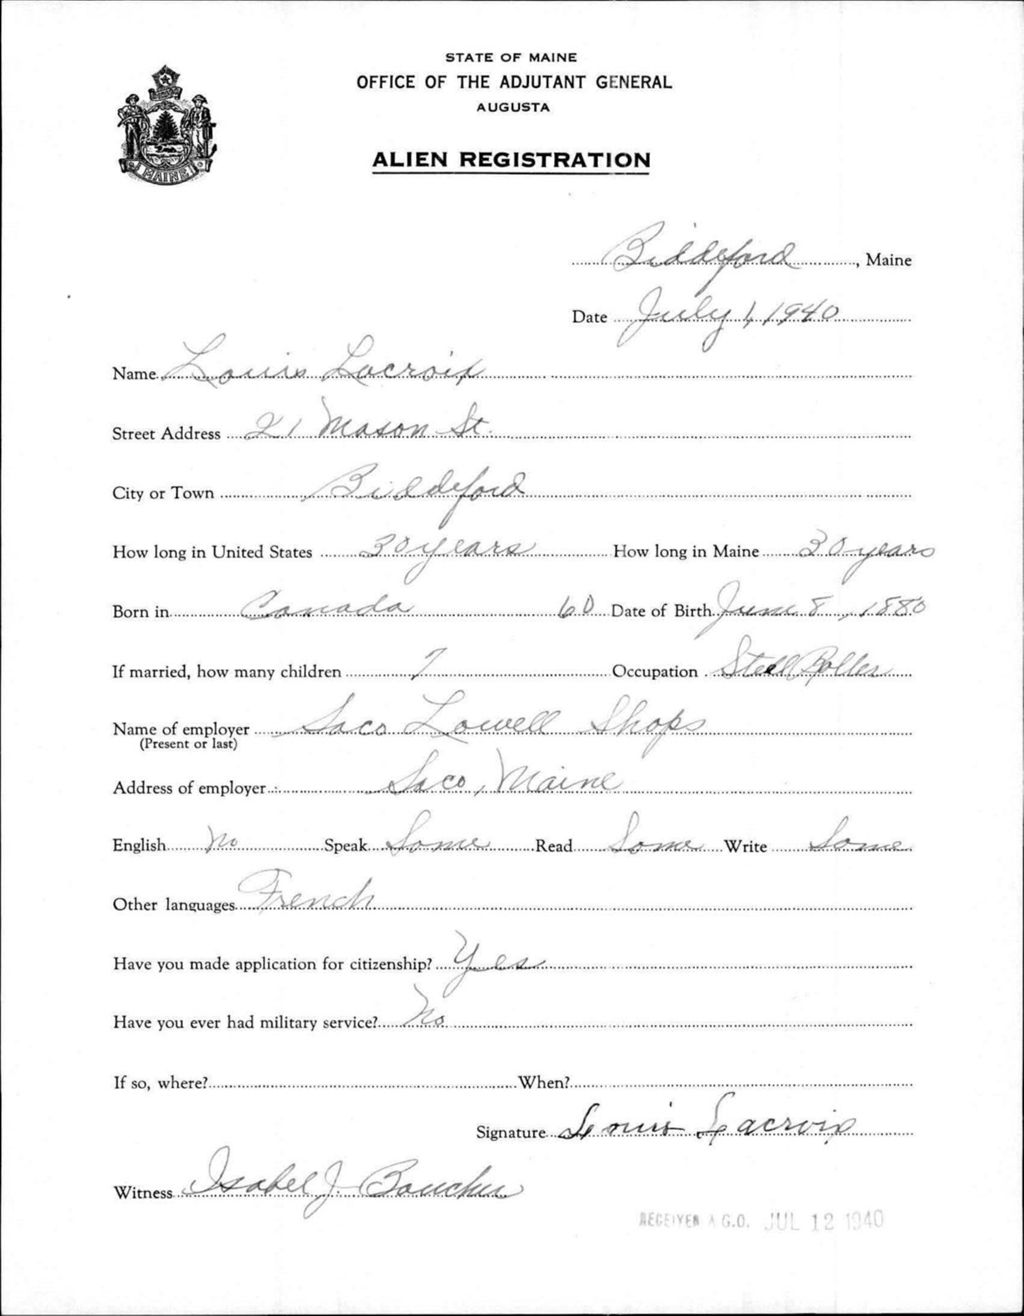 STATE OF MAINE
OFFICE OF THE ADJUTANT GENERAL
AUGUSTA
ALIEN REGISTRATION
MAINE
Biddeford, Maine
Date July 1, 1940
Name Louis Lacroix
Street Address 21 Mason St.
City or Town Biddeford
How long in United States 30 years How long in Maine 30 years
Born in Canada 60 Date of Birth June 8, 1880
If married, how many children 7 Occupation Steel Roller
Name of employer Saco Lowell Shops
(Present or last)
Address of employer Saco, Maine
English No Speak Some Read Some Write Some
Other languages French
Have you made application for citizenship? Yes
Have you ever had military service? No
If so, where? When?
Signature Louis Lacroix
Witness Isabel J. Boucher
RECEIVED A.G.O. JUL 12 1940